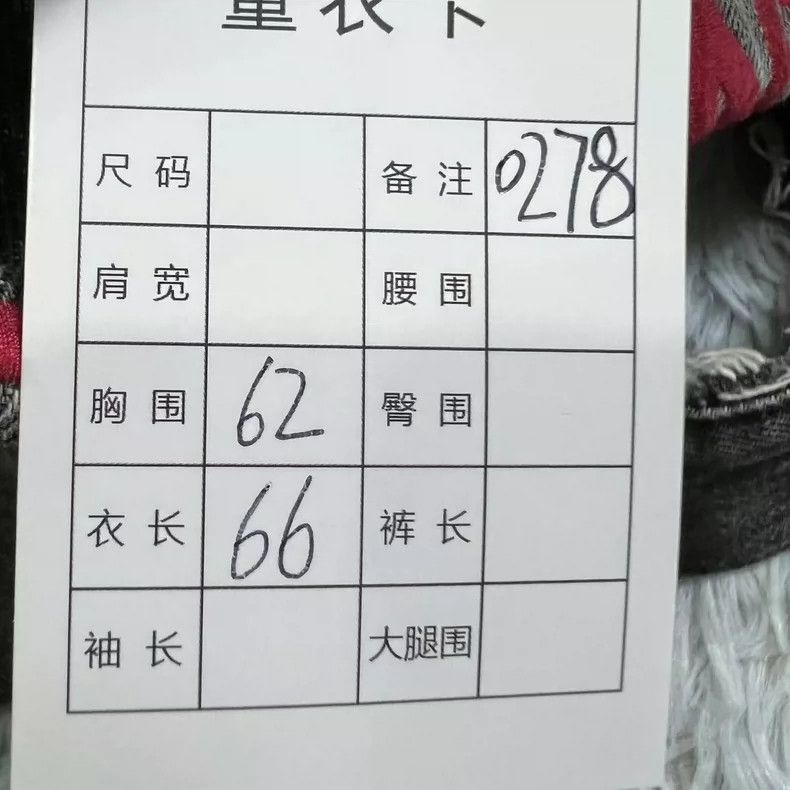 量衣卡
尺码 备注 0278
肩宽 腰围
胸围 62 臀围
衣长 66 裤长
袖长 大腿围